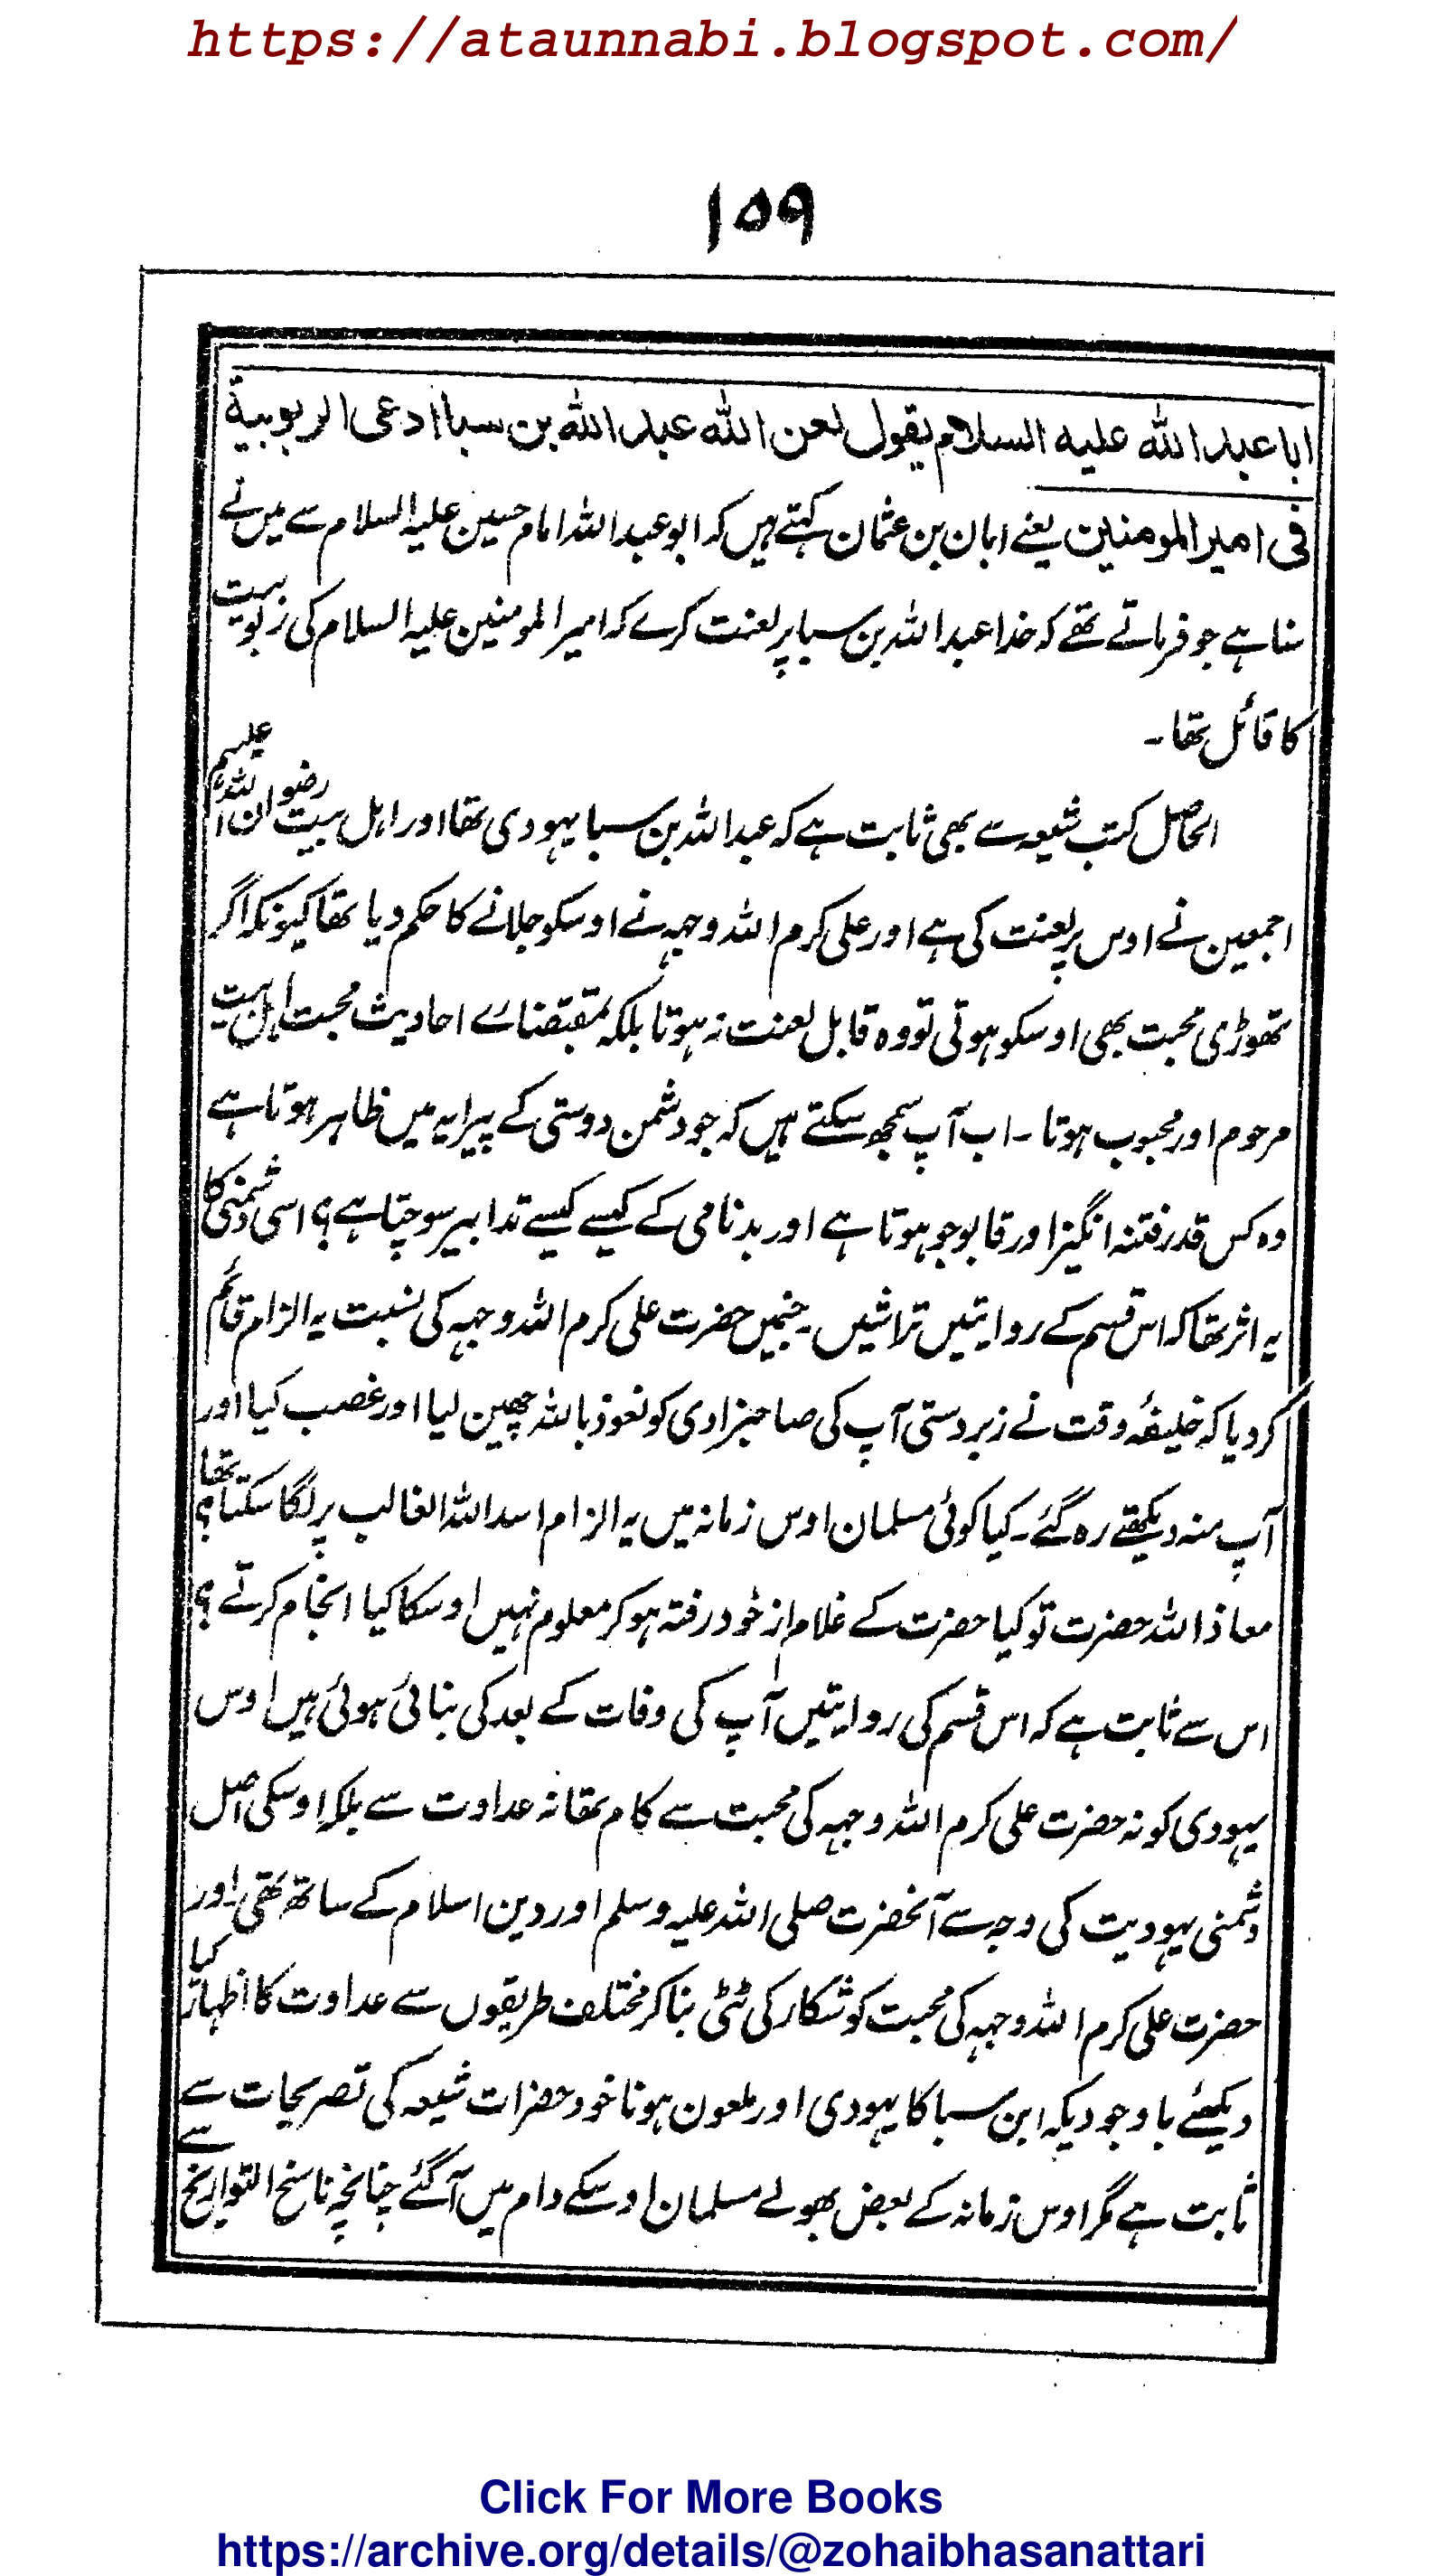 https://ataunnabi.blogspot.com/
۱۵۹
ابا عبد الله علیه السلام یقول لعن الله عبد الله بن سبا ادعی الربوبیة
فی امیر المومنین یعنے ابان بن عثمان کہتے ہیں کہ ابو عبد اللہ امام حسین علیہ السلام سے میں نے
سنا ہے جو فرماتے تھے کہ خدا عبد اللہ بن سبا پر لعنت کرے کہ امیر المومنین علیہ السلام کی ربوبیت
کا قائل تھا۔
الحاصل کتب شیعہ سے بھی ثابت ہے کہ عبد اللہ بن سبا یہودی تھا اور اہل بیت رضوان اللہ علیہم
اجمعین نے اوس پر لعنت کی ہے اور علی کرم اللہ وجہہ نے اوسکو جلانے کا حکم دیا تھا کیونکہ اگر
تھوڑی محبت بھی اوسکو ہوتی تو وہ قابل لعنت نہ ہوتا بلکہ بمقتضاے احادیث محبت اہل بیت
مرحوم اور محبوب ہوتا۔ اب آپ سمجھ سکتے ہیں کہ جو دشمن دوستی کے پیرایہ میں ظاہر ہوتا ہے
وہ کس قدر فتنہ انگیز اور قابو جو ہوتا ہے اور بدنامی کے کیسے کیسے تدابیر سوچتا ہے؟ اسی دشمنی کا
یہ اثر تھا کہ اس قسم کے روایتیں تراشیں۔ جنمیں حضرت علی کرم اللہ وجہہ کی نسبت یہ الزام قائم
کر دیا کہ خلیفۂ وقت نے زبردستی آپ کی صاحبزادی کو نعوذ باللہ چھین لیا اور غصب کیا اور
آپ منہ دیکھتے رہ گئے۔ کیا کوئی مسلمان اوس زمانہ میں یہ الزام اسد اللہ الغالب پر لگا سکتا تھا؟
معاذ اللہ حضرت تو کیا حضرت کے غلام از خود رفتہ ہو کر معلوم نہیں اوسکا کیا انجام کرتے؟
اس سے ثابت ہے کہ اس قسم کی روایتیں آپ کی وفات کے بعد کی بنائی ہوئی ہیں اوس
یہودی کو نہ حضرت علی کرم اللہ وجہہ کی محبت سے کام تھا نہ عداوت سے بلکہ اوسکی اصل
دشمنی یہودیت کی وجہ سے آنحضرت صلی اللہ علیہ وسلم اور دین اسلام کے ساتھ تھی۔ اور
حضرت علی کرم اللہ وجہہ کی محبت کو شکار کی ٹٹی بنا کر مختلف طریقوں سے عداوت کا اظہار کیا
دیکھئے باوجودیکہ ابن سبا کا یہودی اور ملعون ہونا خود حضرات شیعہ کی تصریحات سے
ثابت ہے مگر اوس زمانہ کے بعض بھولے مسلمان اوسکے دام میں آگئے چنانچہ ناسخ التواریخ سے
Click For More Books
https://archive.org/details/@zohaibhasanattari